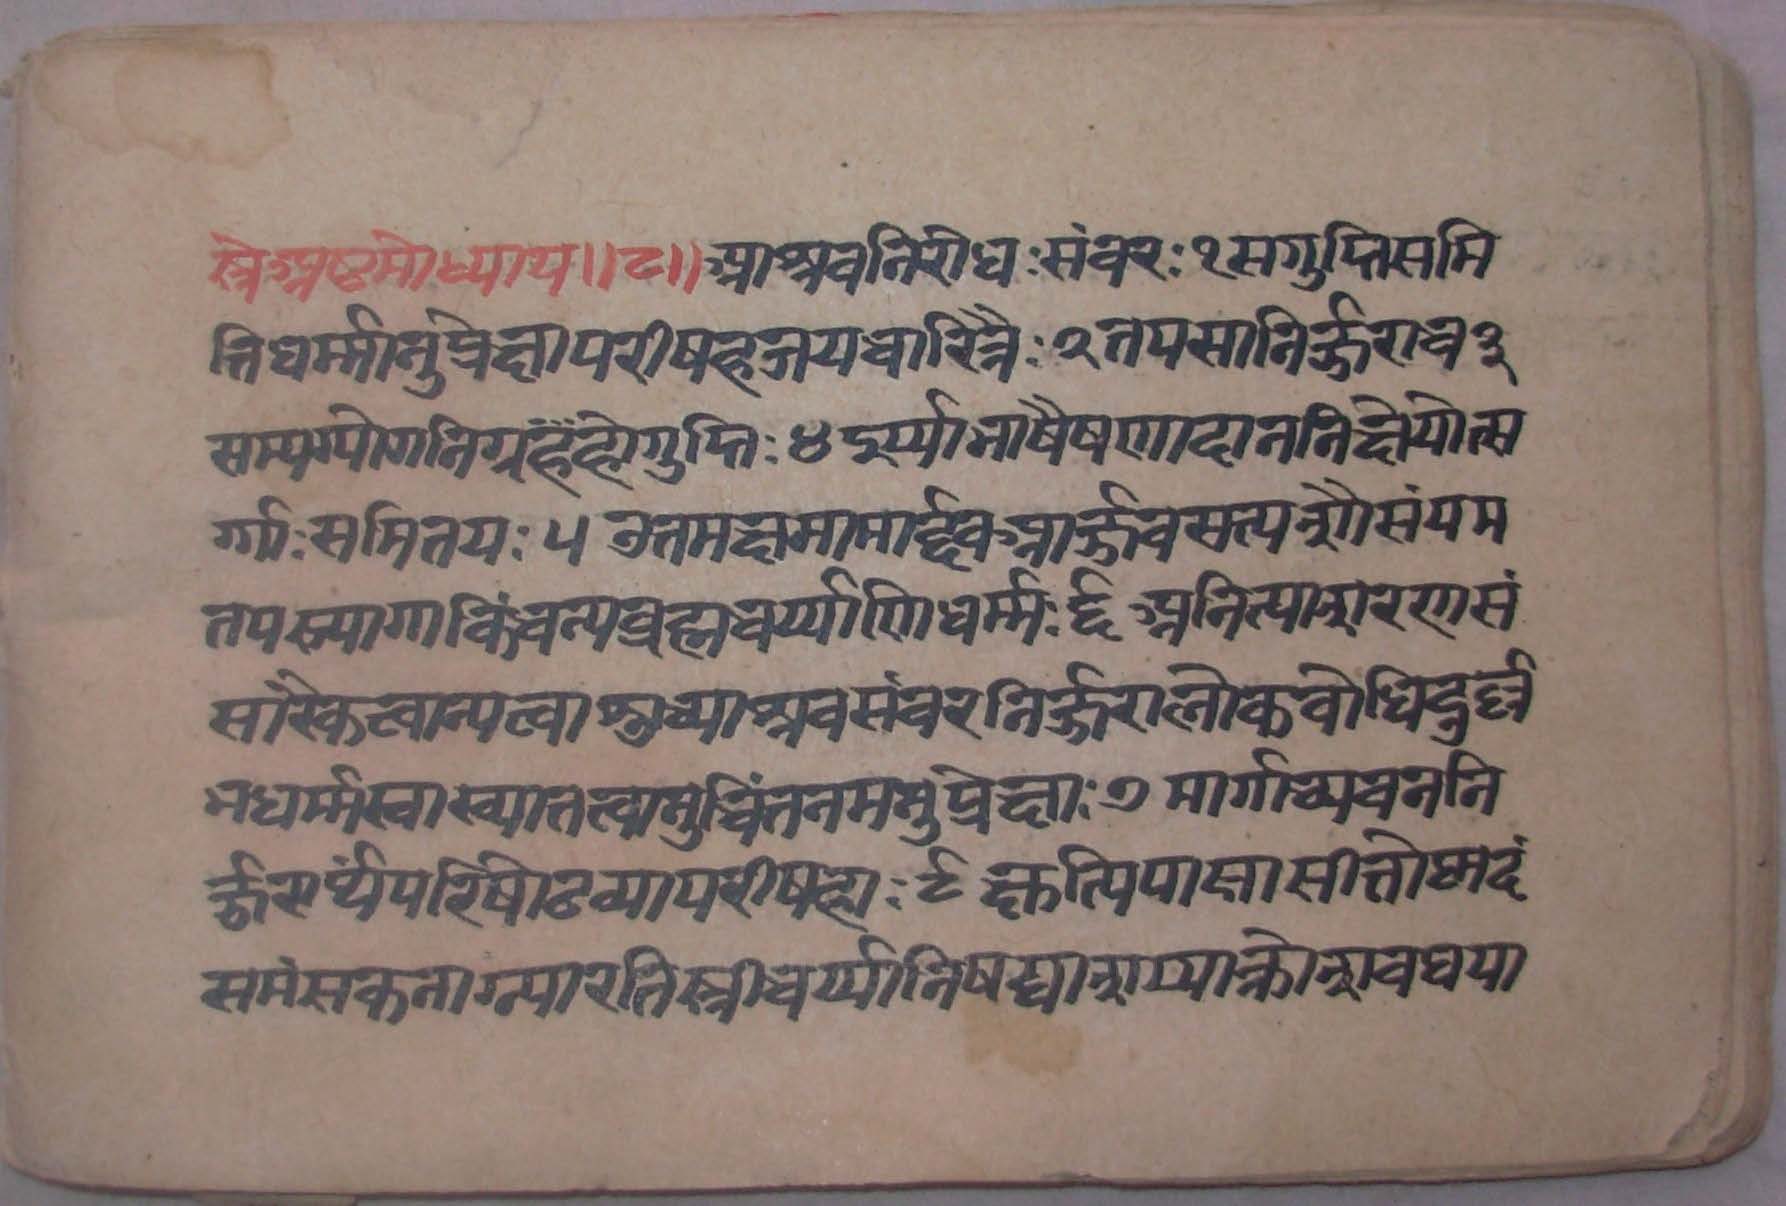 स्त्रेअष्टमोध्याय॥८॥आश्रवनिरोधःसंवरः१सगुप्तिसमि
तिधर्म्मानुप्रेक्षापरीषह्जयचारित्रैः२तपसानिर्ज्जराच३
सम्यग्योगनिग्रहोगुप्तिः४इर्य्याभाषैषणादाननिक्षेपोत्स
र्ग्गाः समितयः५ उत्तमक्षमामार्द्दवआर्ज्जवसत्यशौसंयम
तपस्त्यागाकिंचन्यब्रह्मचर्य्याणिधर्म्मः६ अनित्याशरणसं
सारैकत्वान्यत्वाशुच्याश्रवसंवरनिर्ज्जरालोकबोधिदुर्ल्ल
भधर्म्मस्वाख्यातत्त्वानुचिंतनमनुप्रेक्षाः७ मार्गाच्यवननि
र्ज्जरार्थंपरिषोढव्यापरीषहाः८ क्षुत्पिपासासीतोष्णदं
समंसकनाग्न्यारतिस्त्रीचर्य्यानिषद्याशय्याक्रोशवधया